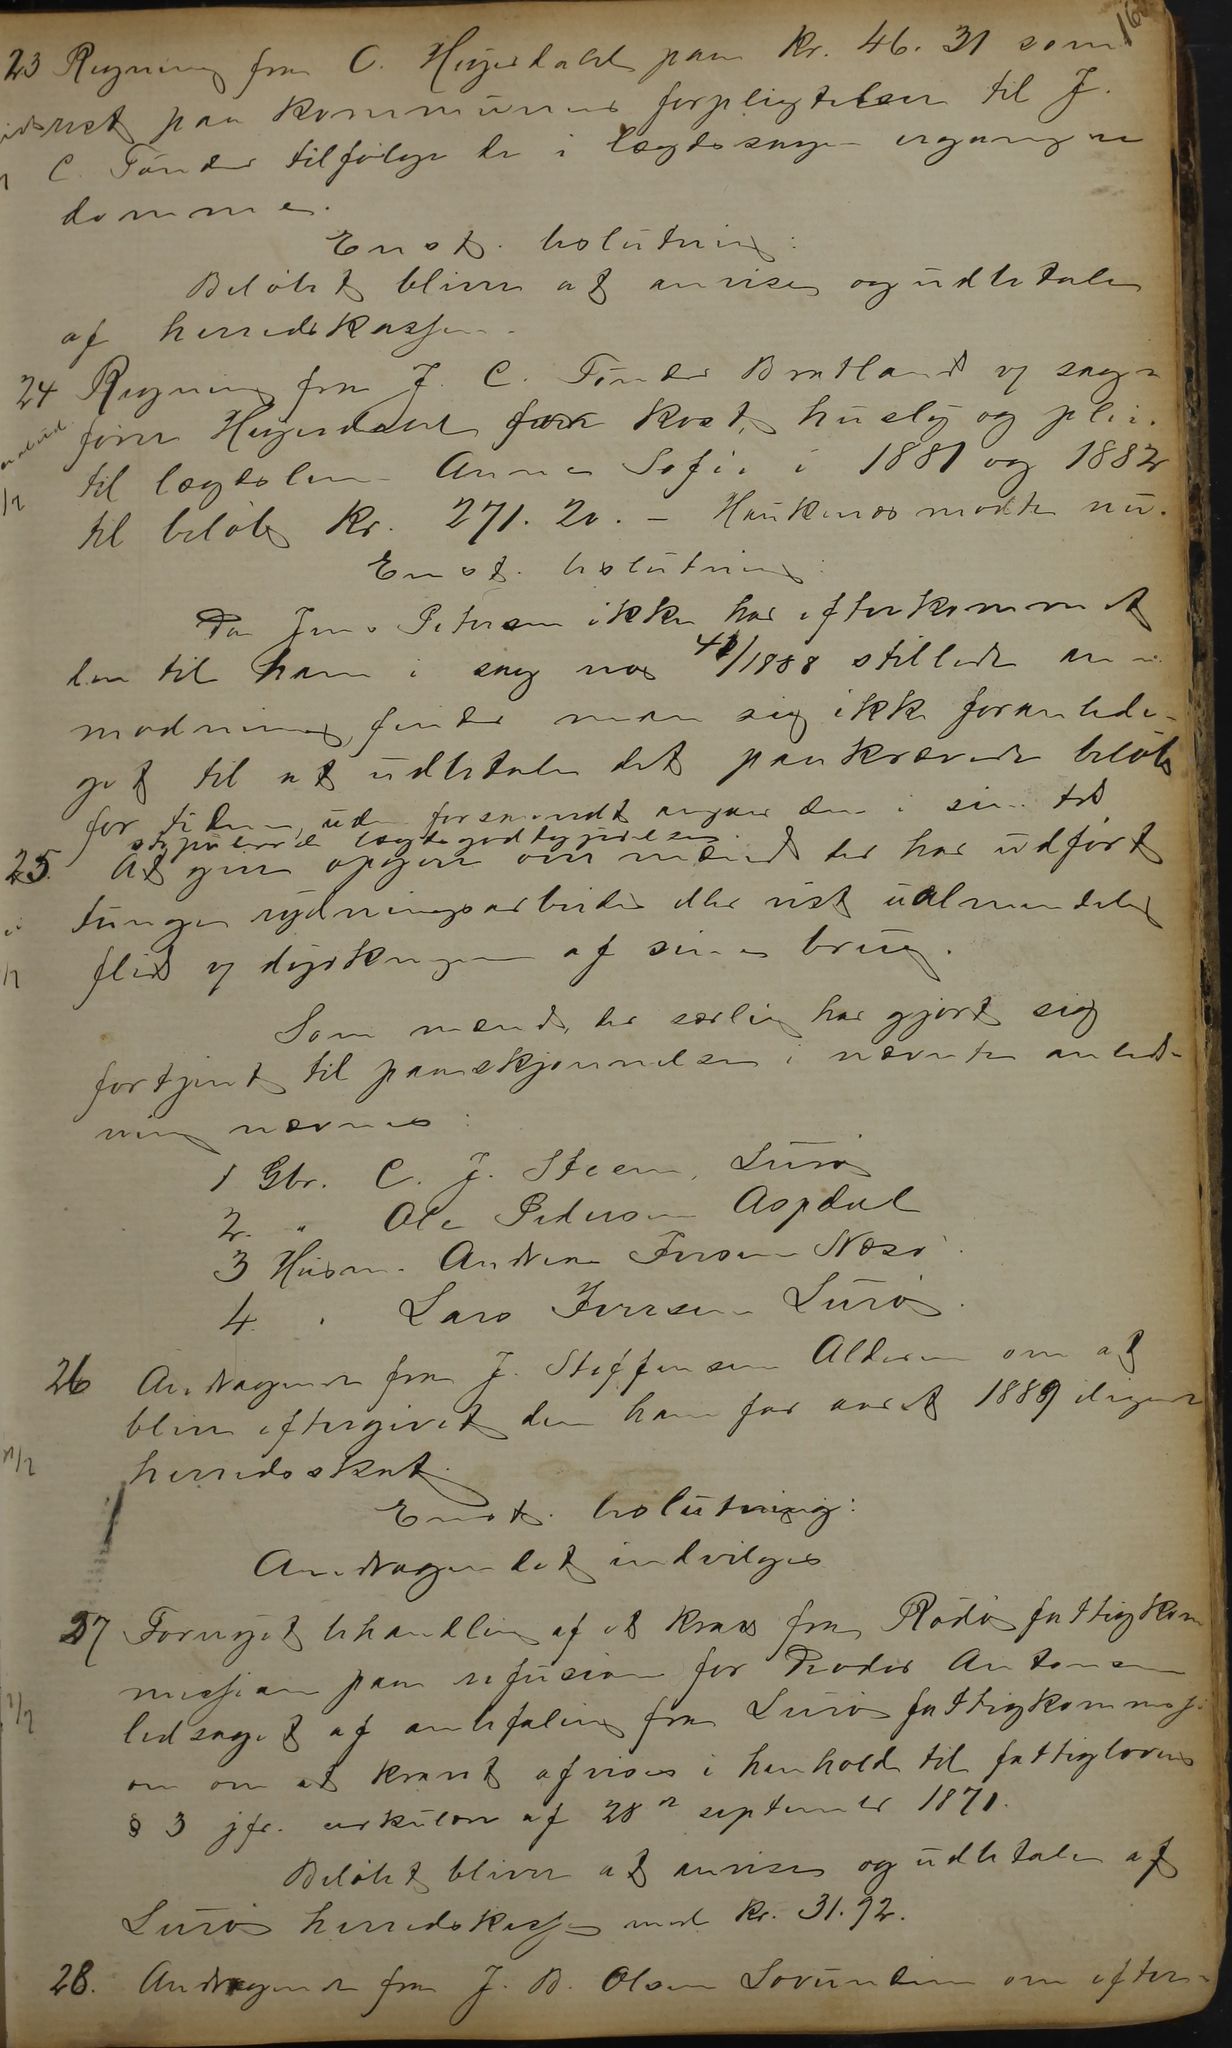 23 Regning fra C. Heyerdahl paa kr. 46.31 som
paa kommunens forpligtelser til J.
C. Tønder tilfølge de i lægdssagen ergangne
domme.
Enst. beslutning:
Beløbet bliver at anvise og udbetale
af herredskassen.
24 Regning fra J. C. Tønder Bratland v sag-
fører Heyerdahl for kost, husly og pleie
til lægdslem Anne Sofie i 1881 og 1882
til beløb kr. 271.20. – Haukenæs mødte nu.
Enst. beslutning:
Da Jens Petersen ikke har efterkommet
den til ham i sag no 41/1888 stillede an-
modning, finder man sig ikke foranledi-
get til at udbetale det paakrævede beløb
for tiden, uden forsaavidt angaar den i sin tid
stipulerede lægdsgodtgjørelse.
25. At give opgave over mænd der har udført
tunge rydningsarbeider eller vist ualmindelig
flid v dyrkningen af sine brug.
Som mænd, der særlig har gjort sig
fortjent til paaskjønnelse i nævnte anled-
ning nævnes:
1 Gbr. C. J. Steen, Lurø
2. " Ole Pedersen Aspdal
3 Husm. Andreas Iversen Næsø
4. " Lars Iversen Lurø.
26 Andragende fra J. Steffensen Alderen om at
blive eftergivet den ham for aaret 1889 ilignede
herredsskat.
Enst. beslutning:
Andragendet indvilges
27 Fornyet behandling af et krav fra Rødø fattigkom
missjon paa refusion for Peder Antonsen
ledsaget af anbefaling fra Lurø fattigkommissi
on om at kravet afvises i henhold til fattiglovens
§ 3 jfr. cirkulære af 28de september 1871.
Beløbet bliver at anvise og udbetale af
Lurø herredskasse med kr. 31.92.
28. Andragende fra J. B. Olsen Lovunden om efter-